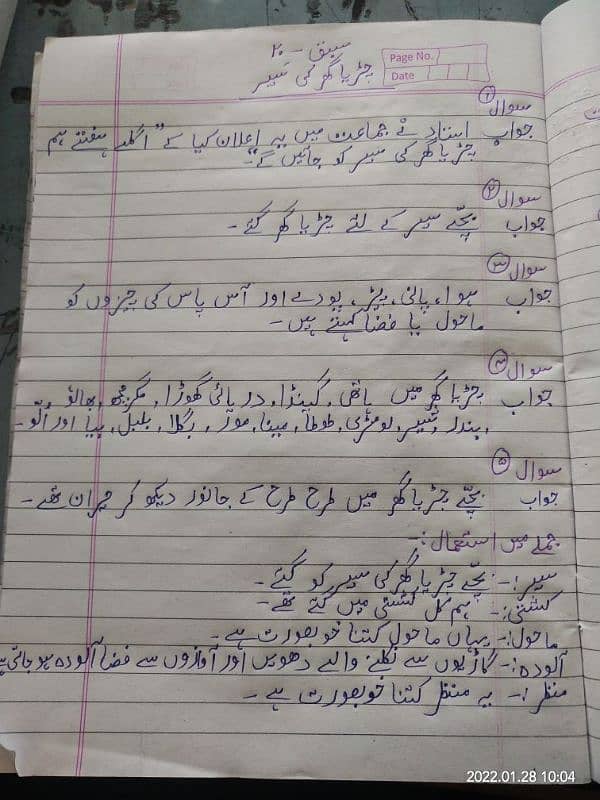 سبق - ۲۰
چڑیا گھر کی سیر
Page No.
Date
سوال ۱
جواب استاد نے جماعت میں یہ اعلان کیا کے " اگلے ہفتے ہم
چڑیا گھر کی سیر کو جائیں گے"۔
سوال ۲
جواب بچّے سیر کے لئے چڑیا گھر گئے ۔
سوال ۳
جواب ہوا، پانی، پیڑ، پودے اور آس پاس کی چیزوں کو
ماحول یا فضا کہتے ہیں ۔
سوال ۴
جواب چڑیا گھر میں ہاتھی، گینڈا، دریائی گھوڑا، مگرمچھ، بھالو
، بندر، شیر، لومڑی، طوطا، مینا، مور، بگلا، بلبل، بیا اور اُلّو ۔
سوال ۵
جواب بچّے چڑیا گھر میں طرح طرح کے جانور دیکھ کر حیران تھے ۔
جملے میں استعمال :-
سیر :- بچّے چڑیا گھر کی سیر کو گئے ۔
کشتی :- ہم کل کشتی میں گئے تھے ۔
ماحول :- یہاں ماحول کتنا خوبصورت ہے ۔
آلودہ :- گاڑیوں سے نکلنے والے دھویں اور آوازوں سے فضا آلودہ ہو جاتی ہے
منظر :- یہ منظر کتنا خوبصورت ہے ۔
2022.01.28 10:04